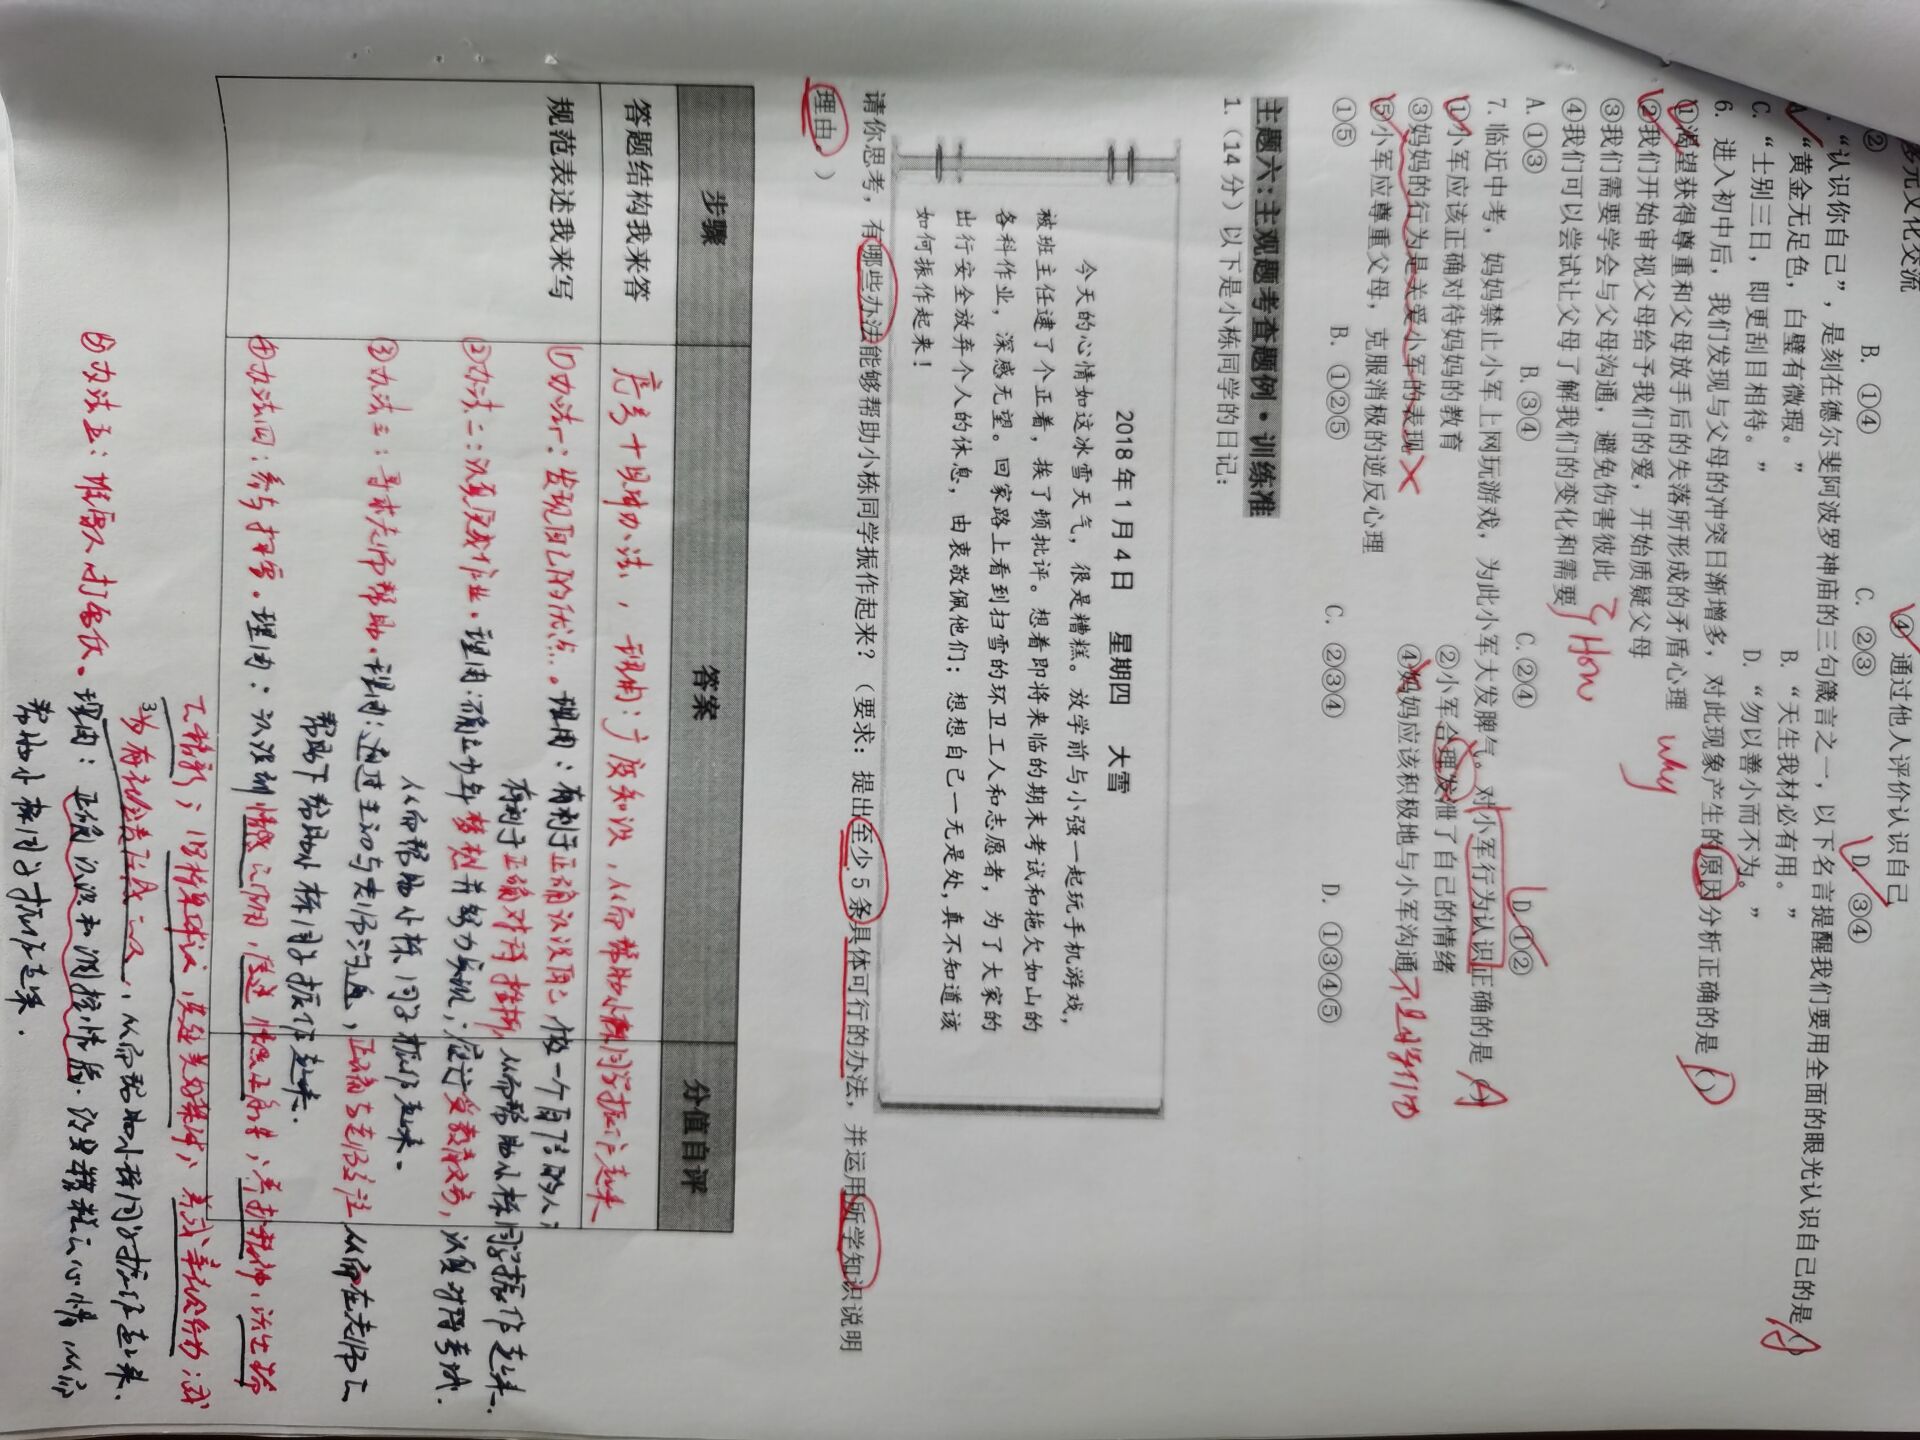 多元文化交流
④通过他人评价认识自己
②
B. ①④
C. ②③
D. ③④
“认识你自己”，是刻在德尔斐阿波罗神庙的三句箴言之一，以下名言提醒我们要用全面的眼光认识自己的是( )
A
A. “黄金无足色，白璧有微瑕。”
B. “天生我材必有用。”
C. “士别三日，即更刮目相待。”
D. “勿以善小而不为。”
6. 进入初中后，我们发现与父母的冲突日渐增多，对此现象产生的原因分析正确的是( )
①渴望获得尊重和父母放手后的失落所形成的矛盾心理
why
②我们开始审视父母给予我们的爱，开始质疑父母
③我们需要学会与父母沟通，避免伤害彼此
④我们可以尝试让父母了解我们的变化和需要
How
A. ①③
B. ③④
C. ②④
D ①②
7. 临近中考，妈妈禁止小军上网玩游戏，为此小军大发脾气。对小军行为认识正确的是( )
A
①小军应该正确对待妈妈的教育
②小军合理发泄了自己的情绪
③妈妈的行为是关爱小军的表现
④妈妈应该积极地与小军沟通
不是小军行为
⑤小军应尊重父母，克服消极的逆反心理
①⑤
B. ①②⑤
C. ②③④
D. ①③④⑤
主题六：主观题考查题例·训练准
1.（14分）以下是小栋同学的日记：
2018年1月4日 星期四 大雪
今天的心情如这冰雪天气，很是糟糕。放学前与小强一起玩手机游戏，
被班主任逮了个正着，挨了顿批评。想着即将来临的期末考试和拖欠如山的
各科作业，深感无望。回家路上看到扫雪的环卫工人和志愿者，为了大家的
出行安全放弃个人的休息，由衷敬佩他们；想想自己一无是处，真不知道该
如何振作起来！
请你思考，有哪些办法能够帮助小栋同学振作起来？（要求：提出至少5条具体可行的办法，并运用所学知识说明
理由。）
步骤
答案
分值自评
答题结构我来答
规范表述我来写
①办法一：发现自己的优点。理由：有利于正确认识自己，做一个自信的人；
有利于正确对待挫折，从而帮助小栋同学振作起来。
②办法二：认真完成作业。理由：确立少年梦想并努力实现，履行受教育义务，认真对待考试。
从而帮助小栋同学振作起来。
③办法三：寻求老师帮助。理由：通过主动与老师沟通，正确与老师交往，从而在老师的
帮助下帮助小栋同学振作起来。
④办法四：参与扫雪。理由：
从而帮助小栋同学振作起来。
⑤办法五：堆雪人打雪仗。理由：正确认识和调控情绪。改变糟糕的心情，从而
帮助小栋同学振作起来。